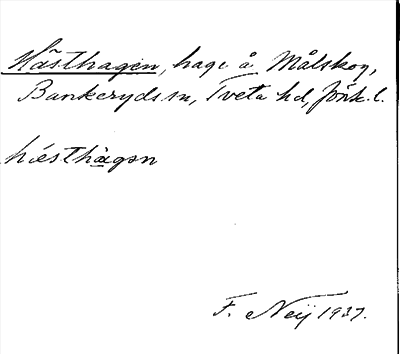 Hästhagen, hage å Målskog,
Bankeryds sn, Tveta hd, Jönk. l.
hésthàgən
F. Neij 1937.